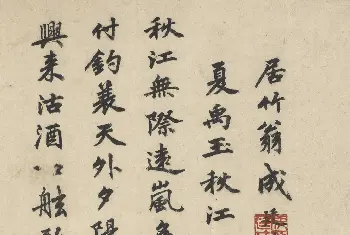 居竹翁成
夏禹玉秋江
秋江無際遠嵐
付釣蓑天外夕陽
興来沽酒 舷